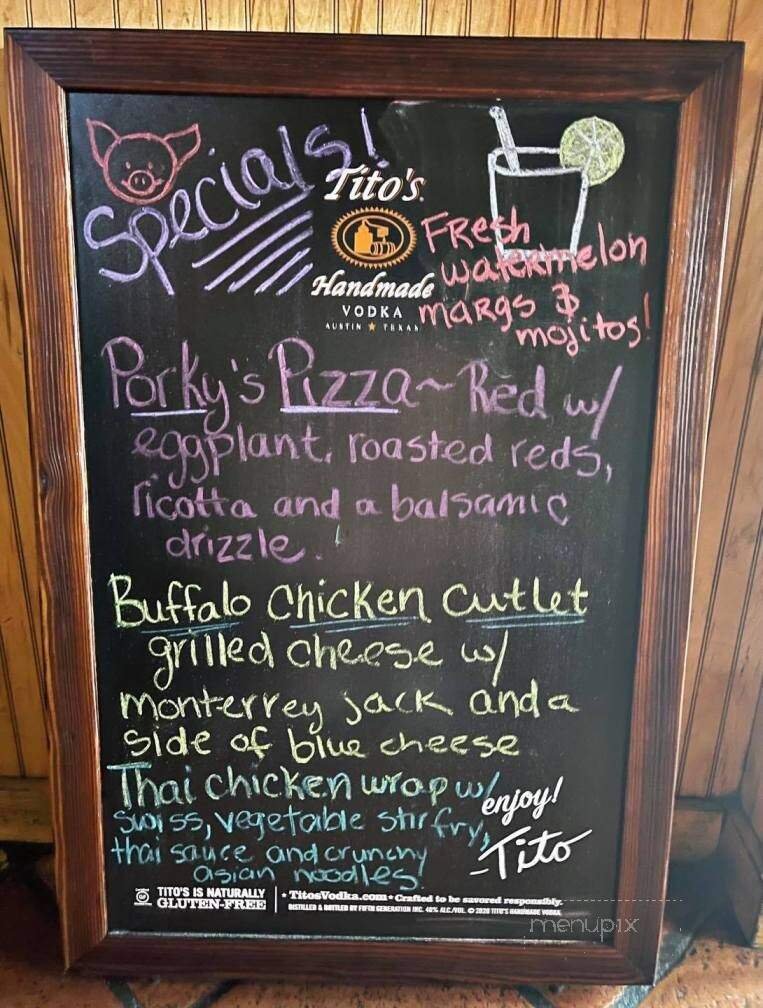 Specials!
Tito's
Handmade
VODKA
AUSTIN ★ TEXAS
Fresh
watermelon
margs &
mojitos!
Porky's Pizza~ Red w/
eggplant, roasted reds,
ricotta and a balsamic
drizzle.
Buffalo Chicken Cutlet
grilled cheese w/
monterrey jack and a
side of blue cheese
Thai chicken wrap w/
swiss, vegetable stir fry,
thai sauce and crunchy
asian noodles!
enjoy!
-Tito
TITO'S IS NATURALLY
GLUTEN-FREE
• TitosVodka.com • Crafted to be savored responsibly.
DISTILLED & BOTTLED BY FIFTH GENERATION INC. 40% ALC./VOL. © 2020 TITO'S HANDMADE VODKA
menupix